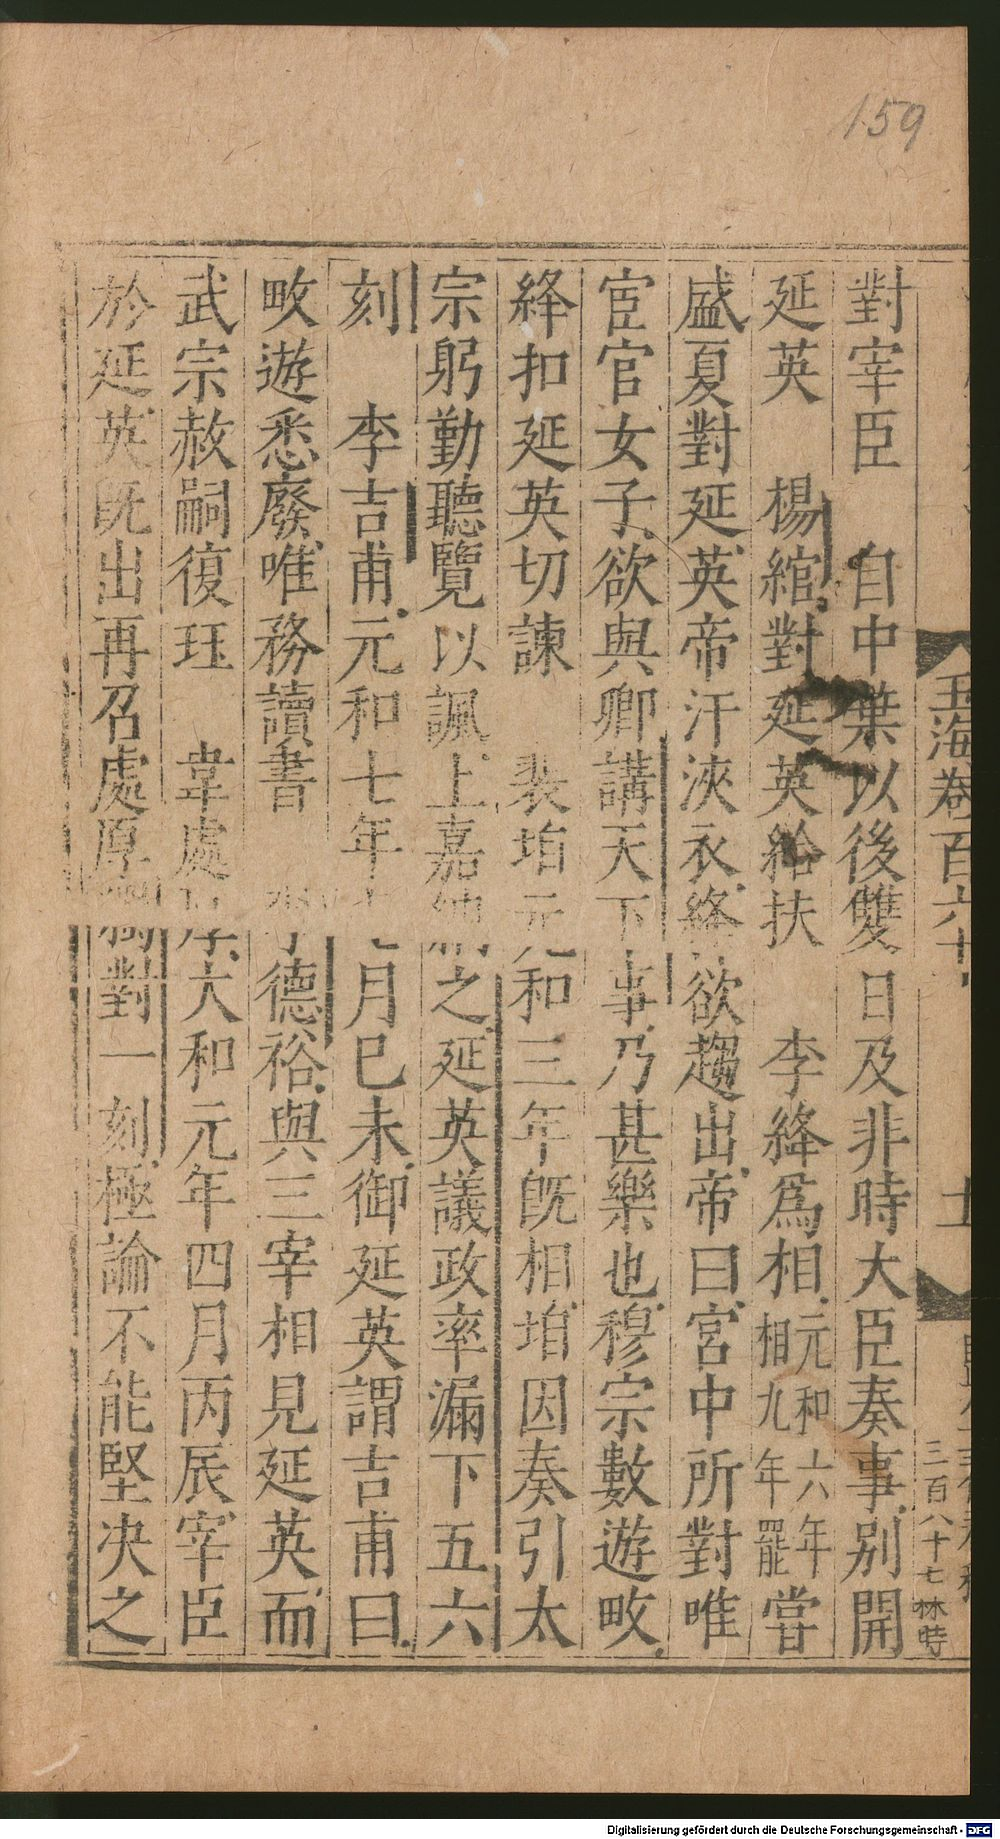 159
玉海卷百六十
十
三百八十七 林時
對宰臣　自中葉以後雙日及非時大臣奏事別開
延英　楊綰對延英給扶　李絳爲相元和六年相九年罷嘗
盛夏對延英帝汗浹衣絳欲趨出帝曰宮中所對唯
宦官女子欲與卿講天下事乃甚樂也穆宗數遊畋
絳扣延英切諫　裴垍元和三年旣相垍因奏引太
宗躬勤聽覽以諷上嘉納之延英議政率漏下五六
刻　李吉甫元和七年月巳未御延英謂吉甫曰
畋遊悉廢唯務讀書　李德裕與三宰相見延英而
武宗赦嗣復珏　韋處厚大和元年四月丙辰宰臣
於延英旣出再召處厚獨對一刻極論不能堅决之
Digitalisierung gefördert durch die Deutsche Forschungsgemeinschaft - DFG